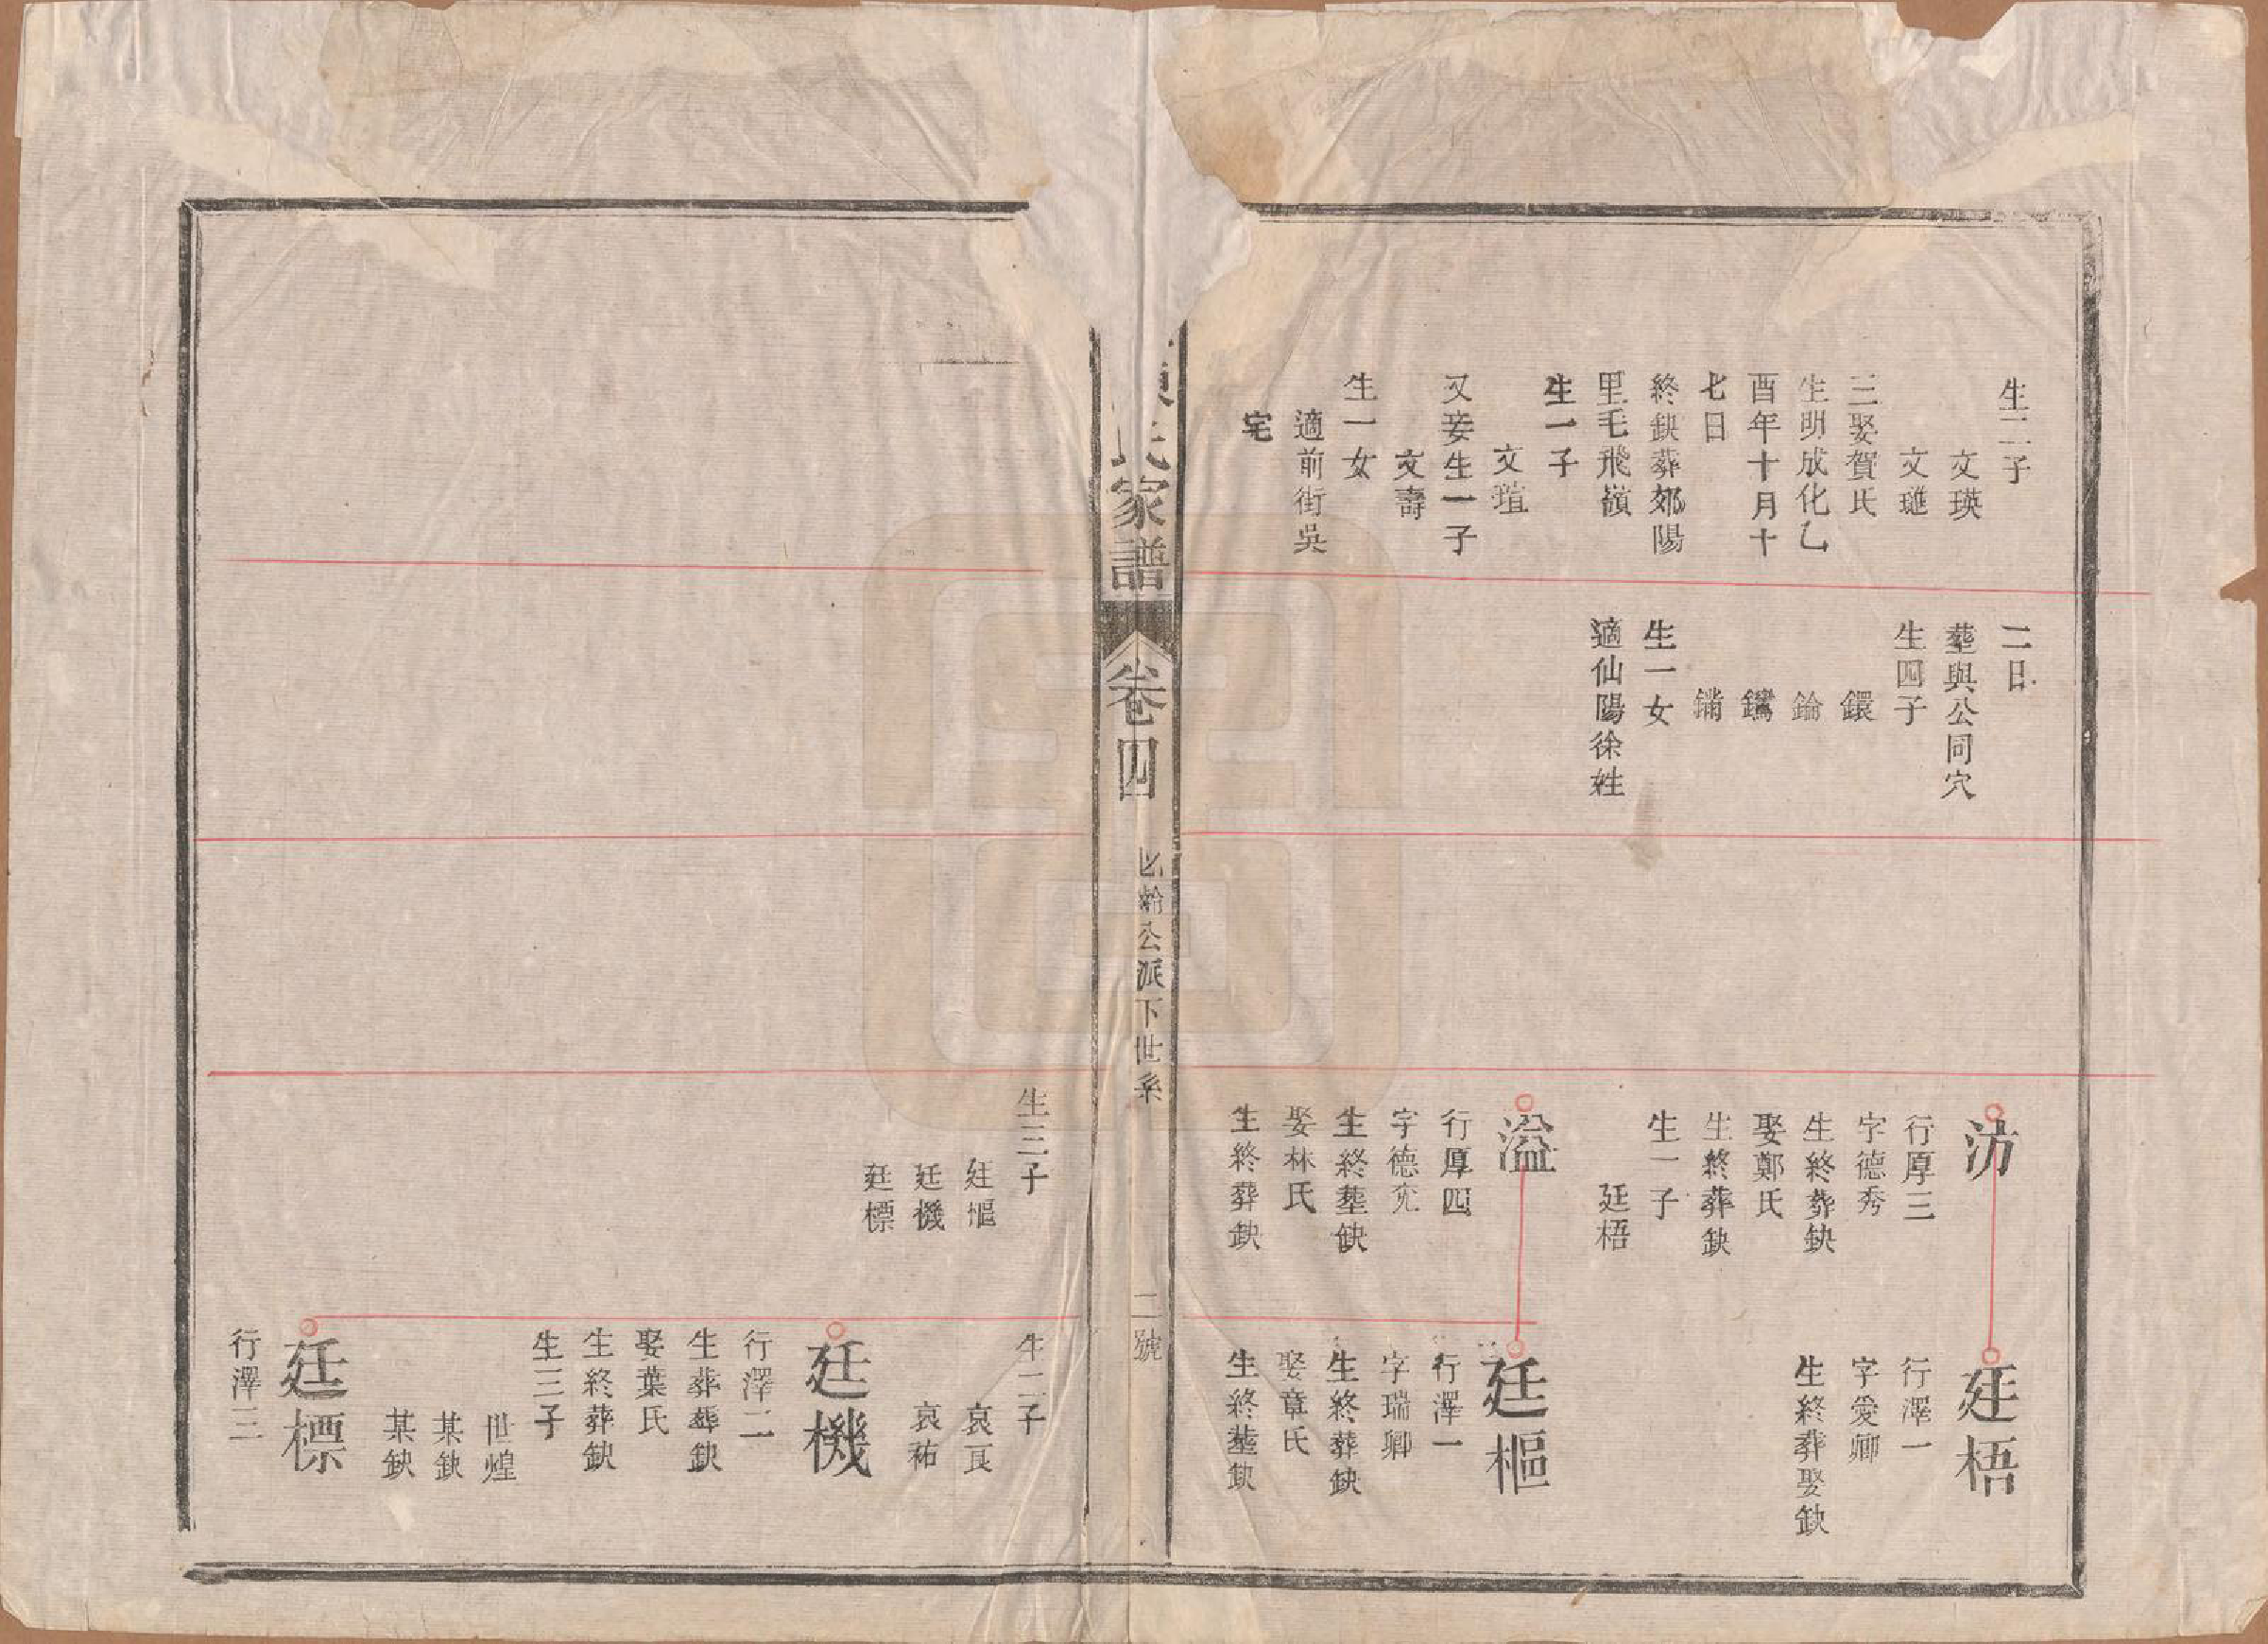 生二子
文瑛
文琟
三娶賀氏
生明成化乙
酉年十月十
七日
終缺葬郊陽
里毛飛嶺
生一子
文瑄
又妾生一子
文壽
生一女
適前街吳
宅
二日
塟與公同穴
生四子
鐶
錀
鐫
鏋
生一女
適仙陽徐姓
汸
行厚三
字德秀
生終葬缺
娶鄭氏
生終葬缺
生一子
廷梧
溢
行厚四
字德充
生終塟缺
娶林氏
生終葬缺
廷梧
行澤一
字愛卿
生終葬娶缺
廷樞
行澤一
字瑞卿
生終葬缺
娶章氏
生終塟缺
氏家譜
卷四
公派下世系
二號
生三子
廷樞
廷機
廷標
生二子
哀良
哀祐
廷機
行澤二
生葬葬缺
娶葉氏
生終葬缺
生三子
世煌
某缺
某缺
廷標
行澤三